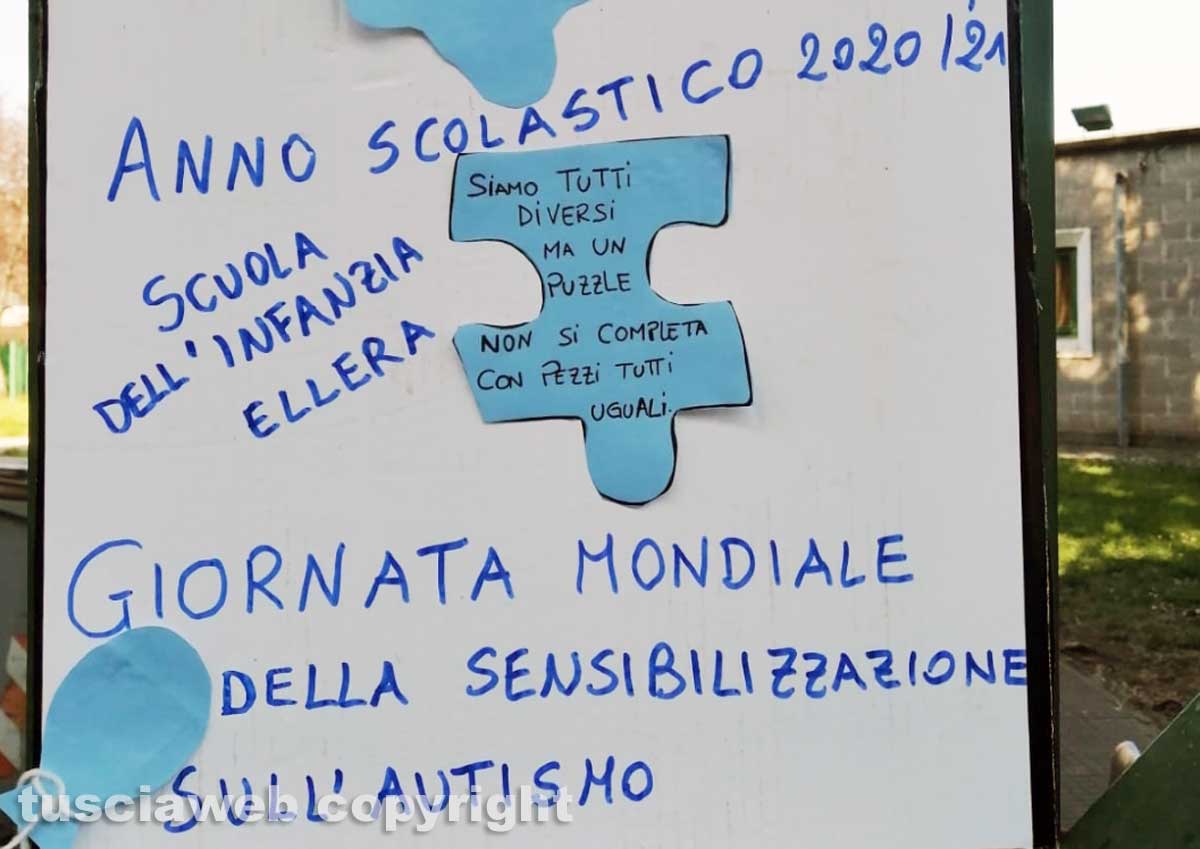 ANNO SCOLASTICO 2020/21
SCUOLA
DELL'INFANZIA
ELLERA
SIAMO TUTTI
DIVERSI
MA UN
PUZZLE
NON SI COMPLETA
CON PEZZI TUTTI
UGUALI.
GIORNATA MONDIALE
DELLA SENSIBILIZZAZIONE
SULL'AUTISMO
tusciaweb copyright